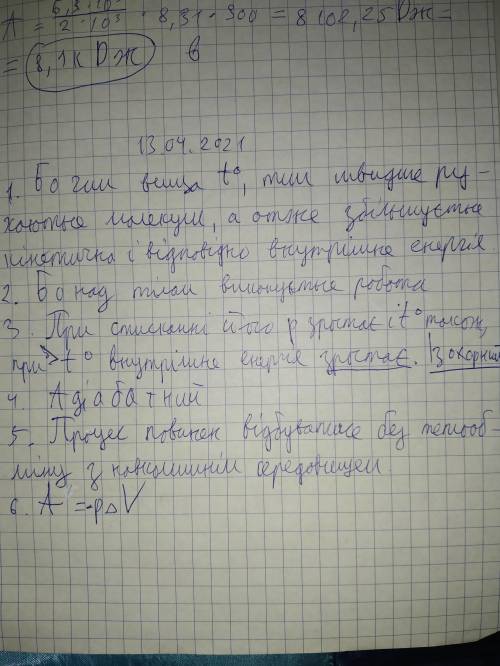 A = 6,5·10³ / 2·10³ · 8,31 · 300 = 8102,25 Дж =
= 8,1 кДж в
13.04.2021
1. Бо чим вища t°, тим швидше ру-
хаються молекули, а отже збільшується
кінетична і відповідно внутрішня енергія
2. Бо над тілом виконується робота
3. При стисканні його p зростає і t° також,
при > t° внутрішня енергія зростає. Ізохорний
4. Адіабатний
5. Процес повинен відбуватися без теплооб-
міну з навколишнім середовищем
6. A = -p△V